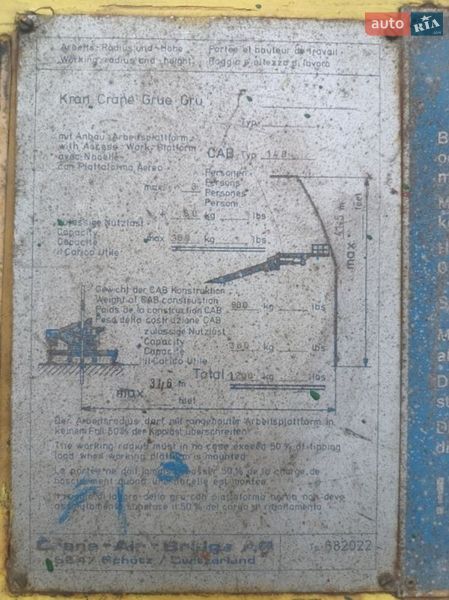 auto RIA.com
Arbeits-Radius und-Höhe Portée et hauteur de travail
Working radius and height Raggio e altezza di lavoro
Kran Crane Grue Gru
Typ
mit Anbau-Arbeitsplattform
with Access-Work-Platform
avec Nacelle
con Piattaforma Aerea
CAB Typ 148
max. Personen
Persons
Personnes
Persone
+ 60 kg lbs
zulässige Nutzlast
Capacity
Capacité
il Carico Utile
max 300 kg lbs
max. m feet
Gewicht der CAB Konstruktion
Weight of CAB construction
Poids de la construction CAB
Peso della costruzione CAB
900 kg lbs
zulässige Nutzlast
Capacity
Capacité
il Carico Utile
300 kg lbs
Total 1200 kg lbs
max 31,6 m
feet
Der Arbeitsradius darf mit angebauter Arbeitsplattform in
keinem Fall 50% der Kipplast überschreiten
The working radius must in no case exceed 50% of tipping
load when working platform is mounted
50% de la charge de
basculement quand nacelle est montée
gru con piattaforma aerea non deve
il 50% del carico di ribaltamento
Crane-Air-Bridge AG
Schötz / Switzerland
682022